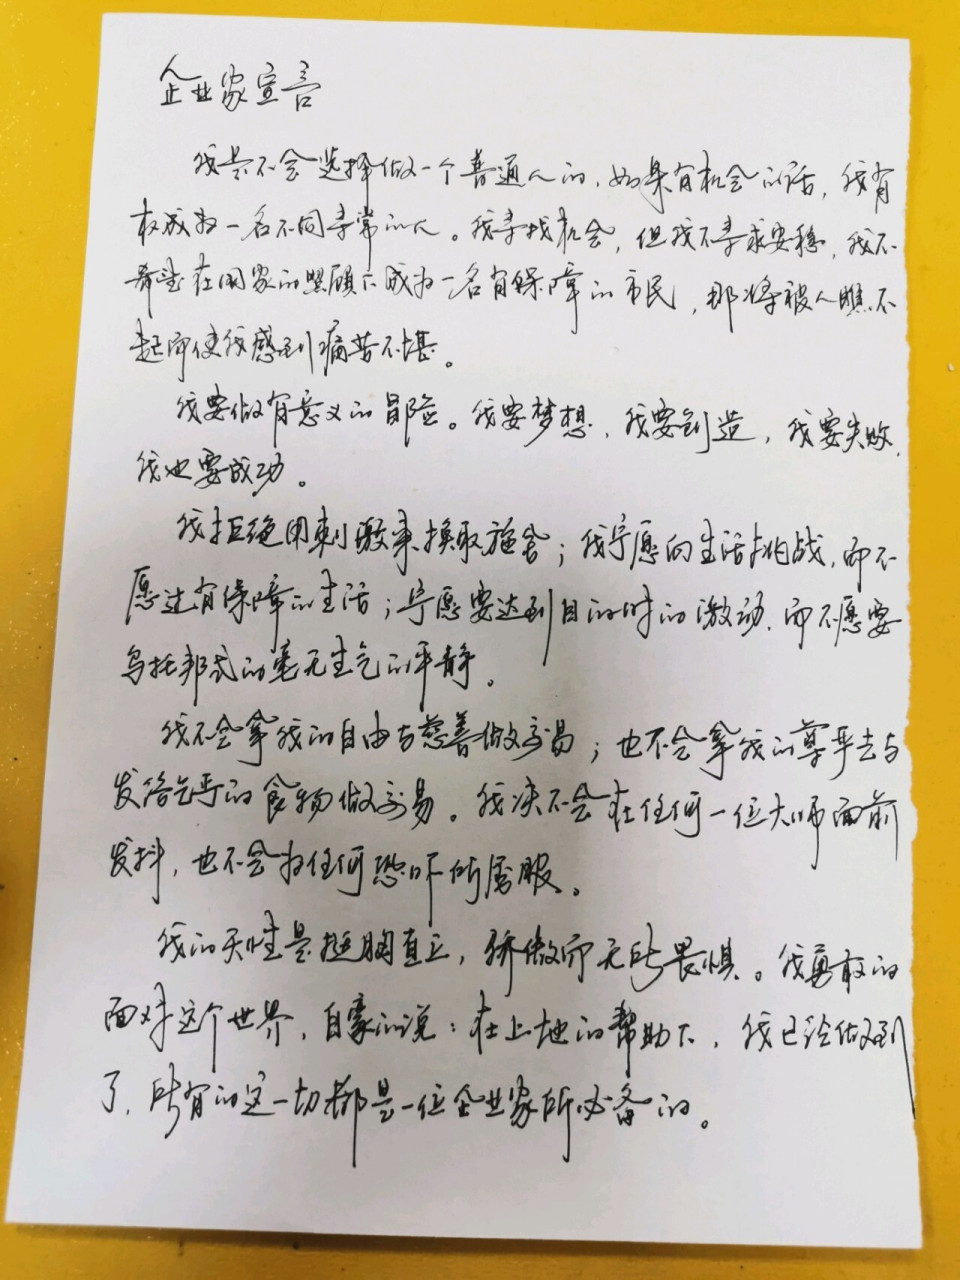 企业家宣言
我是不会选择做一个普通人的，如果有机会的话，我有
权成为一名不同寻常的人。我寻找机会，但我不寻求安稳，我不
希望在国家的照顾下成为一名有保障的市民，那将被人瞧不
起而使我感到痛苦不堪。
我要做有意义的冒险。我要梦想，我要创造，我要失败，
我也要成功。
我拒绝用刺激来换取施舍；我宁愿向生活挑战，而不
愿过有保障的生活；宁愿要达到目的时的激动，而不愿要
乌托邦式的毫无生气的平静。
我不会拿我的自由与慈善做交易；也不会拿我的尊严去与
发给乞丐的食物做交易。我决不会在任何一位大师面前
发抖，也不会为任何恐吓所屈服。
我的天性是挺胸直立，骄傲而无所畏惧。我勇敢的
面对这个世界，自豪的说：在上地的帮助下，我已经做到
了，所有的这一切都是一位企业家所必备的。